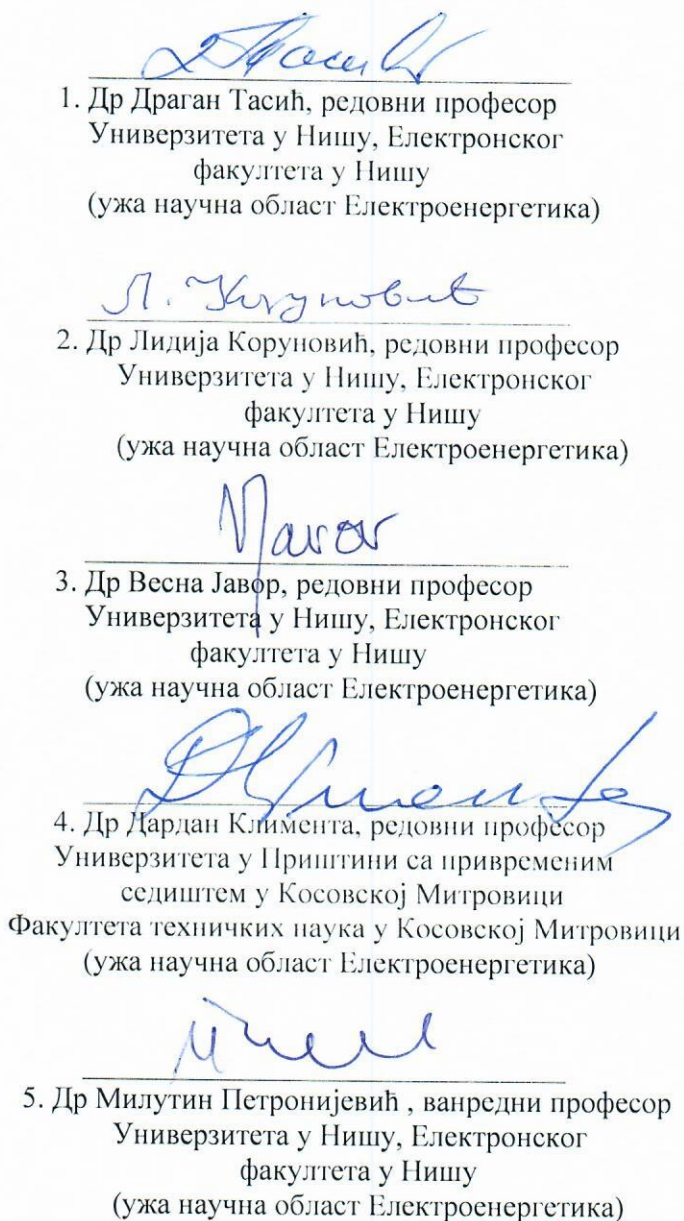 1. Др Драган Тасић, редовни професор
Универзитета у Нишу, Електронског
факултета у Нишу
(ужа научна област Електроенергетика)
Л. Коруновић
2. Др Лидија Коруновић, редовни професор
Универзитета у Нишу, Електронског
факултета у Нишу
(ужа научна област Електроенергетика)
3. Др Весна Јавор, редовни професор
Универзитета у Нишу, Електронског
факултета у Нишу
(ужа научна област Електроенергетика)
4. Др Дардан Климента, редовни професор
Универзитета у Приштини са привременим
седиштем у Косовској Митровици
Факултета техничких наука у Косовској Митровици
(ужа научна област Електроенергетика)
5. Др Милутин Петронијевић , ванредни професор
Универзитета у Нишу, Електронског
факултета у Нишу
(ужа научна област Електроенергетика)